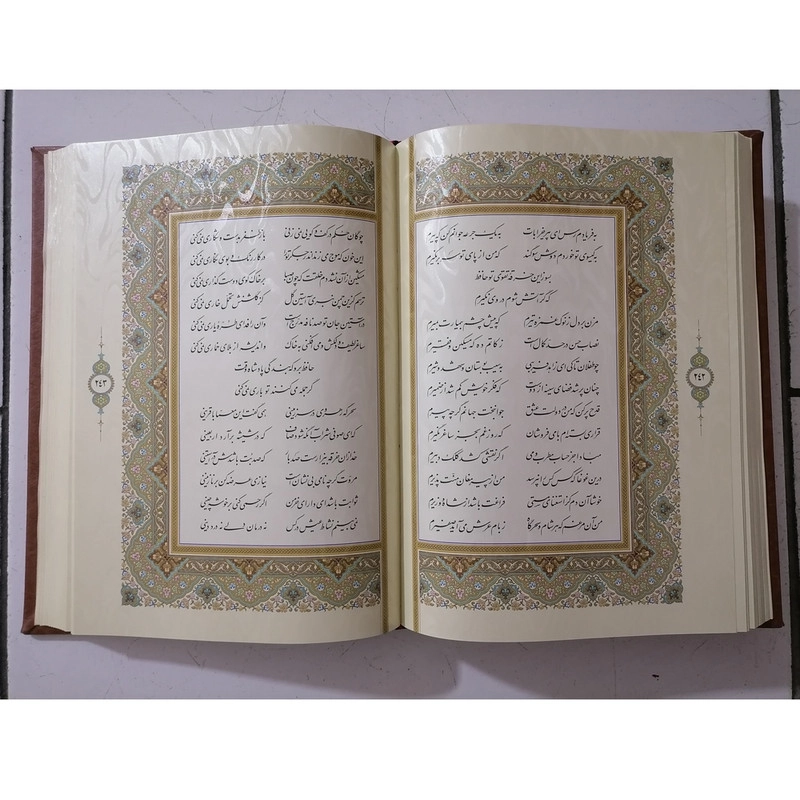 ۲۴۲
به فریادم رس ای پیر خرابات به یک جرعه جوانم کن که پیرم
به گیسوی تو خوردم دوش سوگند که من از پای تو سر بر نگیرم
بسوز این خرقه تقوی تو حافظ
که گر آتش شوم در وی نگیرم
مزن بر دل ز نوک غمزه تیرم که پیش چشم بیمارت بمیرم
نصاب حسن در حد کمال است زکاتم ده که مسکین و فقیرم
چو طفلان تا کی ای زاهد فریبی به سیب بستان و شهد و شیرم
چنان پر شد فضای سینه از دوست که فکر خویش گم شد از ضمیرم
قدح پر کن که من در دولت عشق جوانبخت جهانم گرچه پیرم
قراری بسته‌ام با می فروشان که روز غم بجز ساغر نگیرم
مبادا جز حساب مطرب و می اگر نقشی کشد کلک دبیرم
درین غوغا که کس کس را نپرسد من از پیر مغان منت پذیرم
خوشا آن دم کز استغنای مستی فراغت باشد از شاه و وزیرم
من آن مرغم که هر شام و سحرگاه ز بام عرش می آید صفیرم
۲۴۳
چوگان حکم در کف و گویی نمی زنی باز ظفر بدست و شکاری نمی کنی
این خون که موج می زند اندر جگر ترا در کار رنگ و بوی نگاری نمی کنی
مسکین از آن نشد دم خلقت که چون صبا بر خاک کوی دوست گذاری نمی کنی
ترسم کزین چمن نبری آستین گل کز گلشنش تحمل خاری نمی کنی
در آستین جان تو صد نافه مدرج است وان را فدای طره یاری نمی کنی
ساغر لطیف و دلکش و می افکنی به خاک و اندیشه از بلای خماری نمی کنی
حافظ برو که بندگی پادشاه وقت
گر جمله می کنند تو باری نمی کنی
سحرگه رهروی در سرزمینی همی گفت این معما با قرینی
که ای صوفی شراب آنگه شود صاف که در شیشه برآرد اربعینی
خدا زان خرقه بیزار است صد بار که صد بت باشدش در آستینی
مروت گرچه نامی بی نشان است نیازی عرضه کن بر نازنینی
ثوابت باشد ای دارای خرمن اگر رحمی کنی بر خوشه چینی
نمی بینم نشاط عیش در کس نه درمان دلی نه درد دینی